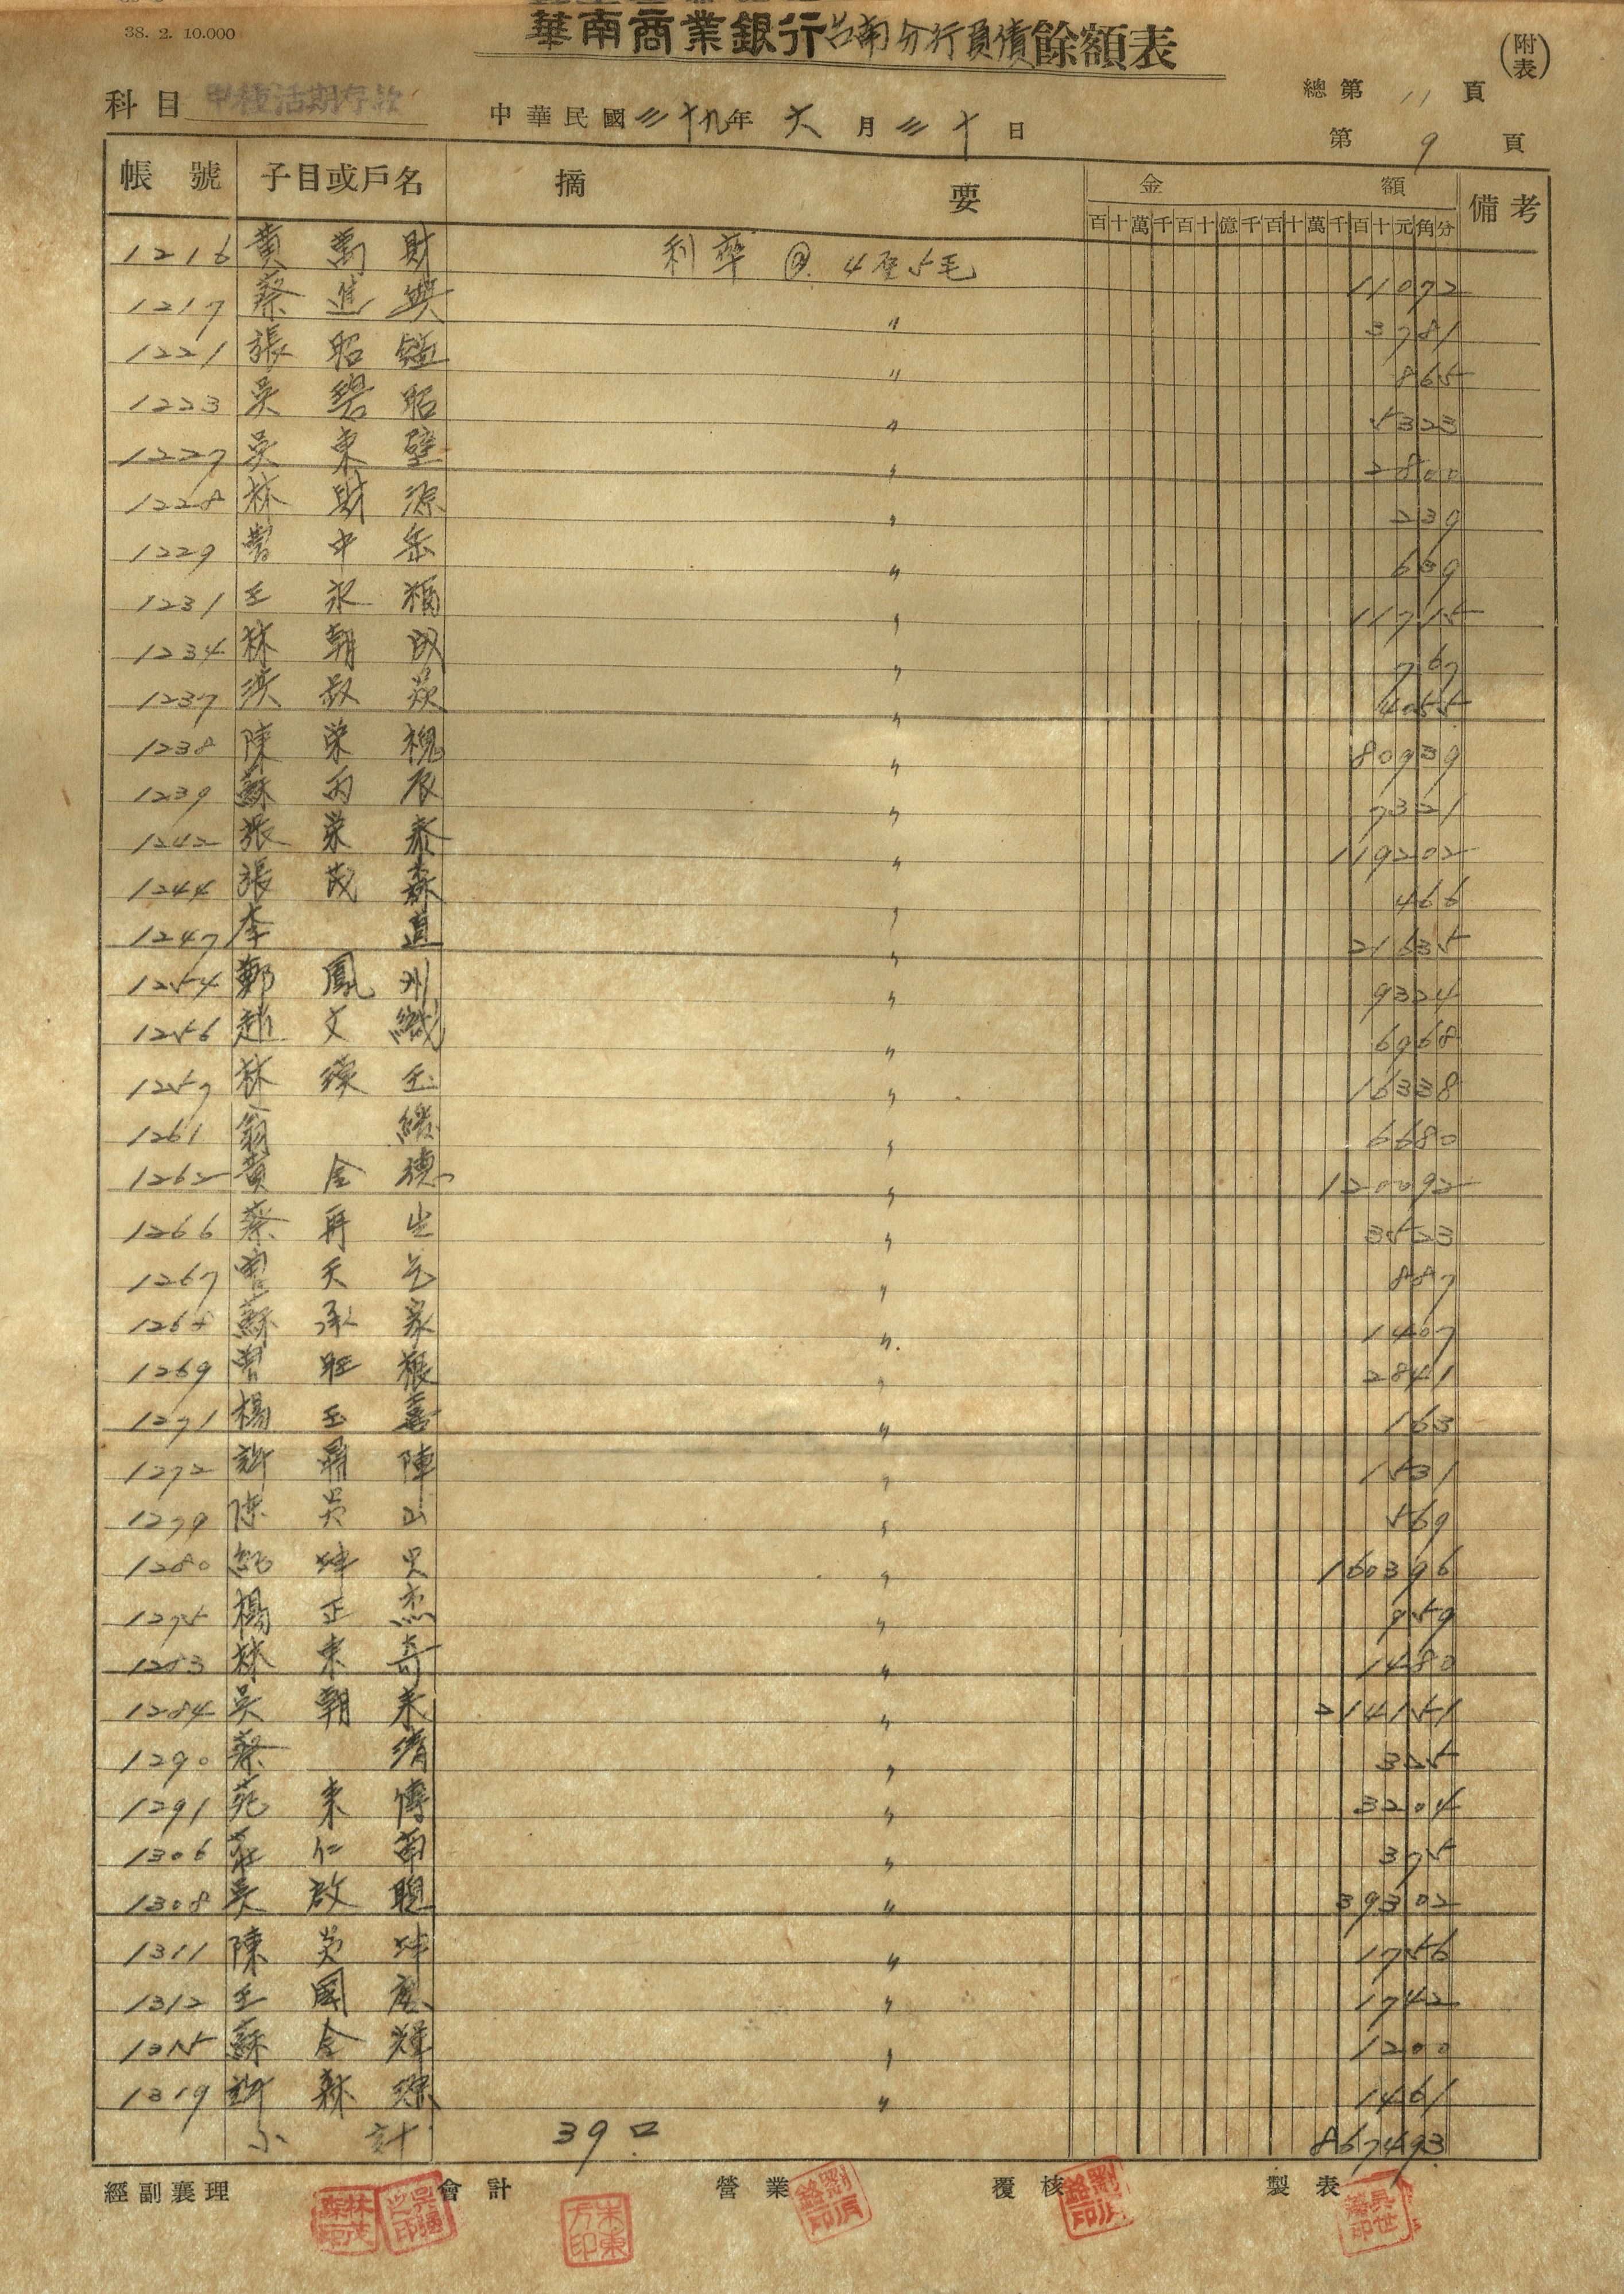 38. 2. 10.000
華南商業銀行台南分行負債餘額表
(附表)
科目 甲種活期存款
中華民國三十九年六月三十日
總第 11 頁
第 9 頁
帳號 子目或戶名 摘要 金額 備考
百十萬千百十億千百十萬千百十元角分
1216 黃萬財 利率 @. 4厘5毛 11092
1217 蔡進興 〃 3781
1221 張昭 〃 865
1223 吳 昭 〃 5323
1227 吳東壁 〃 2800
1228 林財源 〃 239
1229 曾中岳 〃 639
1231 王永福 〃 11715
1234 林朝成 〃 767
1237 洪叔 〃 4055
1238 陳榮槐 〃 80939
1239 蘇丙辰 〃 7321
1242 張榮泰 〃 119202
1244 張茂森 〃 466
1247 李直 〃 21535
1254 鄭鳳州 〃 9324
1256 趙文織 〃 6968
1257 林 玉 〃 16338
1261 翁 〃 6680
1262 黃金德 〃 120092
1266 蔡再生 〃 3523
1267 天 〃 887
1268 蘇承家 〃 1407
1269 曾旺根 〃 2841
1271 楊玉喜 〃 163
1272 許鼎陣 〃 1531
1279 陳 山 〃 569
1280 坤 〃 160396
1275 楊正杰 〃 959
1283 林東奇 〃 1480
1284 吳朝來 〃 214151
1290 蔡清 〃 325
1291 苑東傳 〃 3204
1306 莊仁南 〃 375
1308 吳啟聰 〃 39302
1311 陳英坤 〃 1756
1312 王國慶 〃 1742
1315 蘇金輝 〃 1200
1319 許森源 〃 1461
小計 39口 867493
經副襄理 會計 營業 覆核 製表